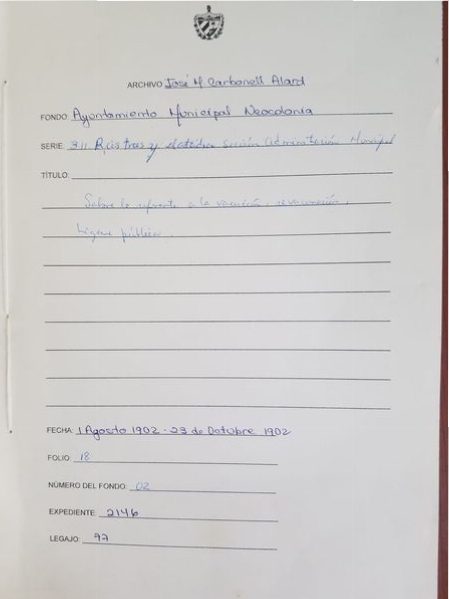 ARCHIVO José M Carbonell Alard
FONDO: Ayuntamiento Municipal Neocolonia
SERIE: 3.11 Administración Municipal
TÍTULO:
Sobre lo referente a la vacunación, revacunación,
higiene pública.
FECHA: 1 Agosto 1902 - 23 de Octubre 1902
FOLIO: 18
NÚMERO DEL FONDO: 02
EXPEDIENTE: 2146
LEGAJO: 92